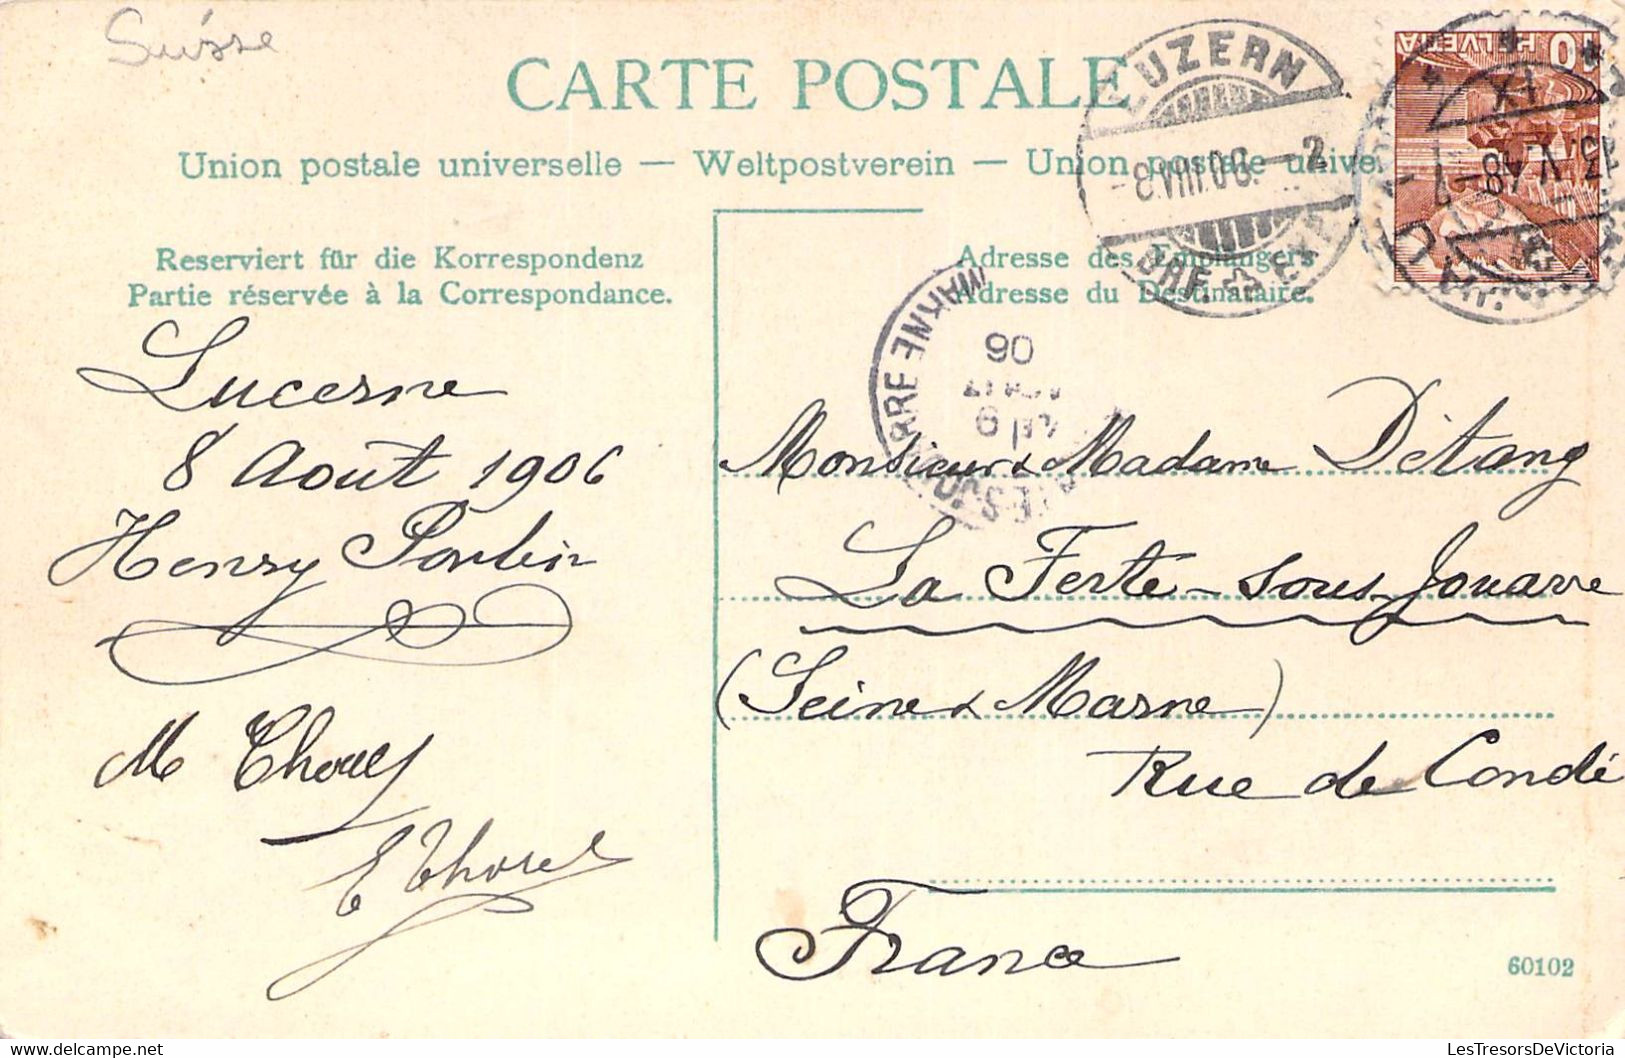 Suisse
CARTE POSTALE
Union postale universelle — Weltpostverein — Union postale unive
LUZERN
-8.VIII.06.—2
BRF. EXP.
HELVETIA 10
XI
13.V.48-7
Reserviert für die Korrespondenz
Partie réservée à la Correspondance.
Adresse des Empfängers
Adresse du Destinataire.
MARNE
06
Lucerne
8 Août 1906
Henry Poubin
M Thorel
E Thorel
Monsieur & Madame Détang
La Ferté-sous-Jouarre
(Seine & Marne)
Rue de Condé
France
60102
LesTresorsDeVictoria